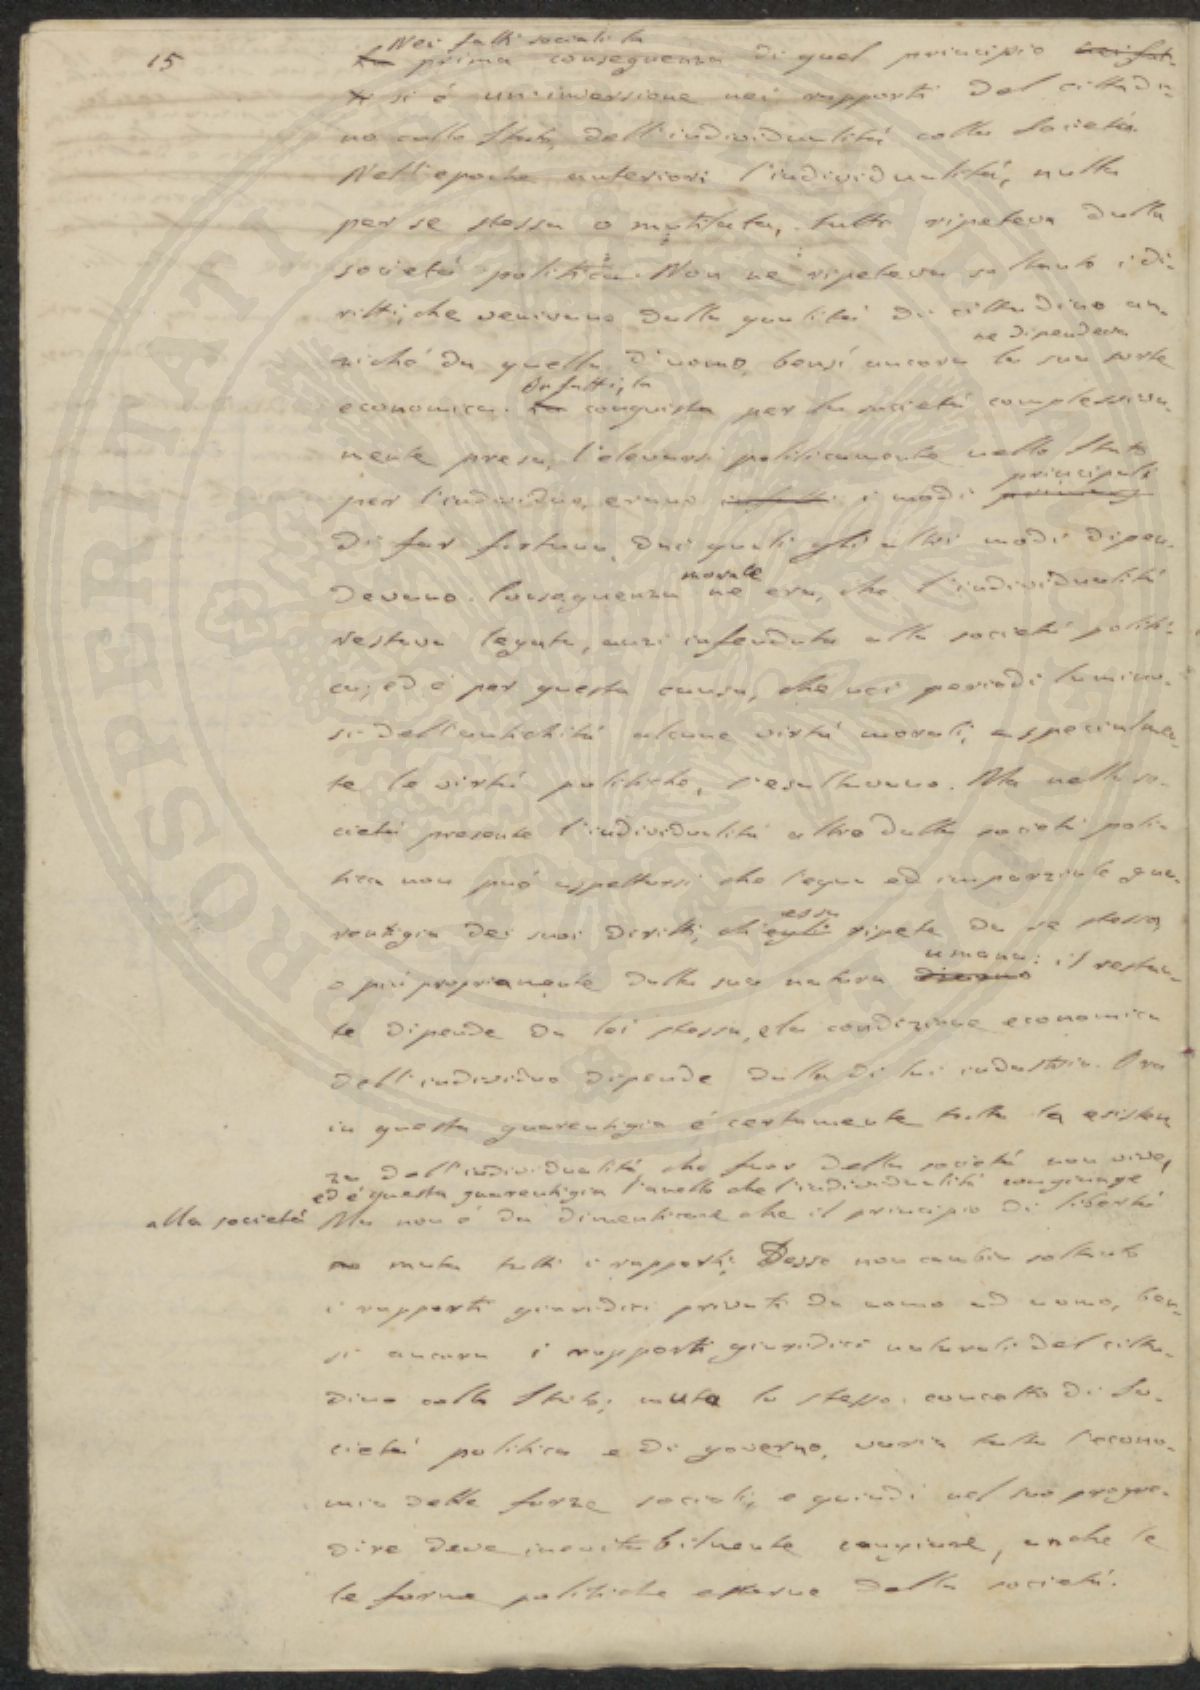 15
Nei fatti sociali la
La prima conseguenza di quel principio nei fat-
ti si é un'inversione nei rapporti del cittadi-
no collo Stato, dell'individualitá colla Societá.
Nell'epoche anteriori l'individualitá, nulla
per se stessa o mutilata, tutto ripeteva dalla
societá politica. Non ne ripeteva soltanto i di-
ritti, che venivano dalla qualitá di cittadino an-
ne dipendeva
ziché da quella d'uomo, bensí ancora la sua sorte
Infatti, la
economica. La conquista per la societá complessiva-
mente presa, l'elevarsi politicamente nello Stato
principali
per l'individuo, erano infatti i modi
di far fortuna, dai quali gli altri modi dipen-
morale
devano. Conseguenza ne era, che l'individualitá
restava legata, anzi infeudata alla societá politi-
ca; ed é per questa causa, che nei periodi lumino-
si dell'antichitá alcune virtú morali, e specialmen-
te le virtú politiche, s'esaltavano. Ma nella so-
cietá presente l'individualitá altro dalla societá poli-
tica non puó aspettarsi che l'equa ed imparziale gua-
essa
rentigia dei suoi diritti, ch'egli ripete da se stessa,
umana: il restan-
o piú propriamente dalla sua natura d'uomo
te dipende da lei stessa, e la condizione economica
dell'individuo dipende dalla di lui industria. Ora
in questa guarentigia é certamente tutta la esisten
za dell'individualitá, che fuor della societá non vive,
ed é questa guarentigia l'anello che l'individualitá congiunge
alla societá Ma non é da dimenticare che il principio di libertá
muta tutti i rapporti. Desso non cambia soltanto
i rapporti giuridici privati da uomo ad uomo, ben-
si ancora i rapporti giuridici naturali del citta-
dino collo Stato; muta lo stesso concetto di So-
cietá politica e di governo, varia tutta l'econo-
mia delle forze sociali, e quindi nel suo progre-
dire deve inevitabilmente cangiare, anche le
le forme politiche esterne della societá.